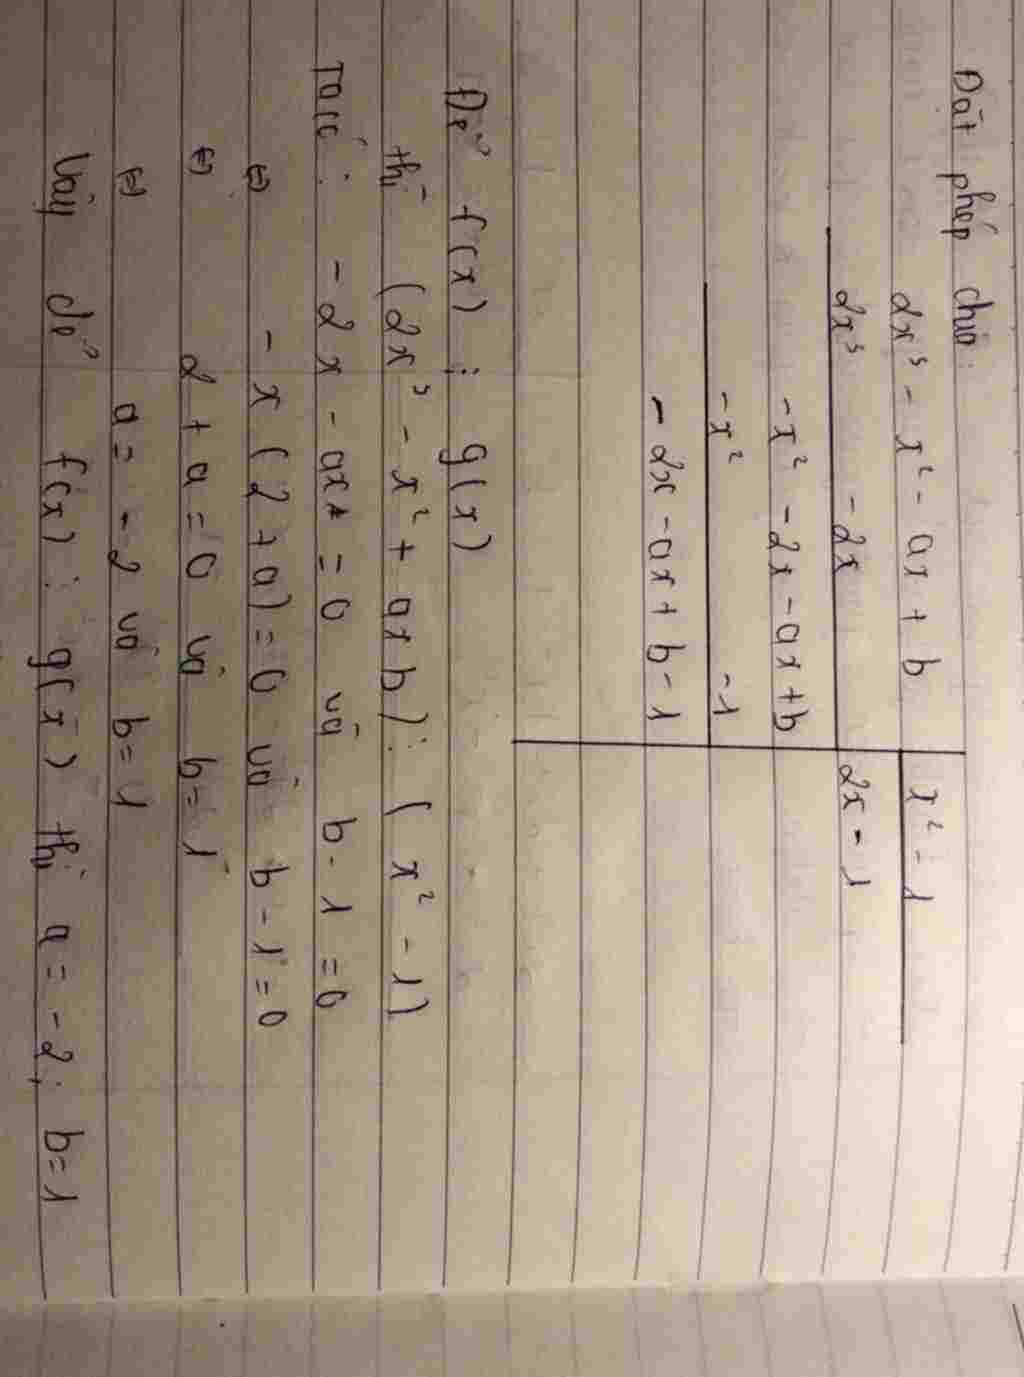 Đặt phép chia:
2x³ - x² - ax + b | x² - 1
2x³ - 2x | 2x - 1
-x² - 2x - ax + b
-x² -1
- 2x - ax + b - 1
Để f(x) ⋮ g(x)
thì (2x³ - x² + ax b) : ( x² - 1)
Ta có : - 2x - ax = 0 và b - 1 = 0
⇔ - x (2 + a) = 0 và b - 1 = 0
⇔ 2 + a = 0 và b = 1
⇔ a = - 2 và b = 1
Vậy để f(x) : g(x) thì a = - 2; b = 1